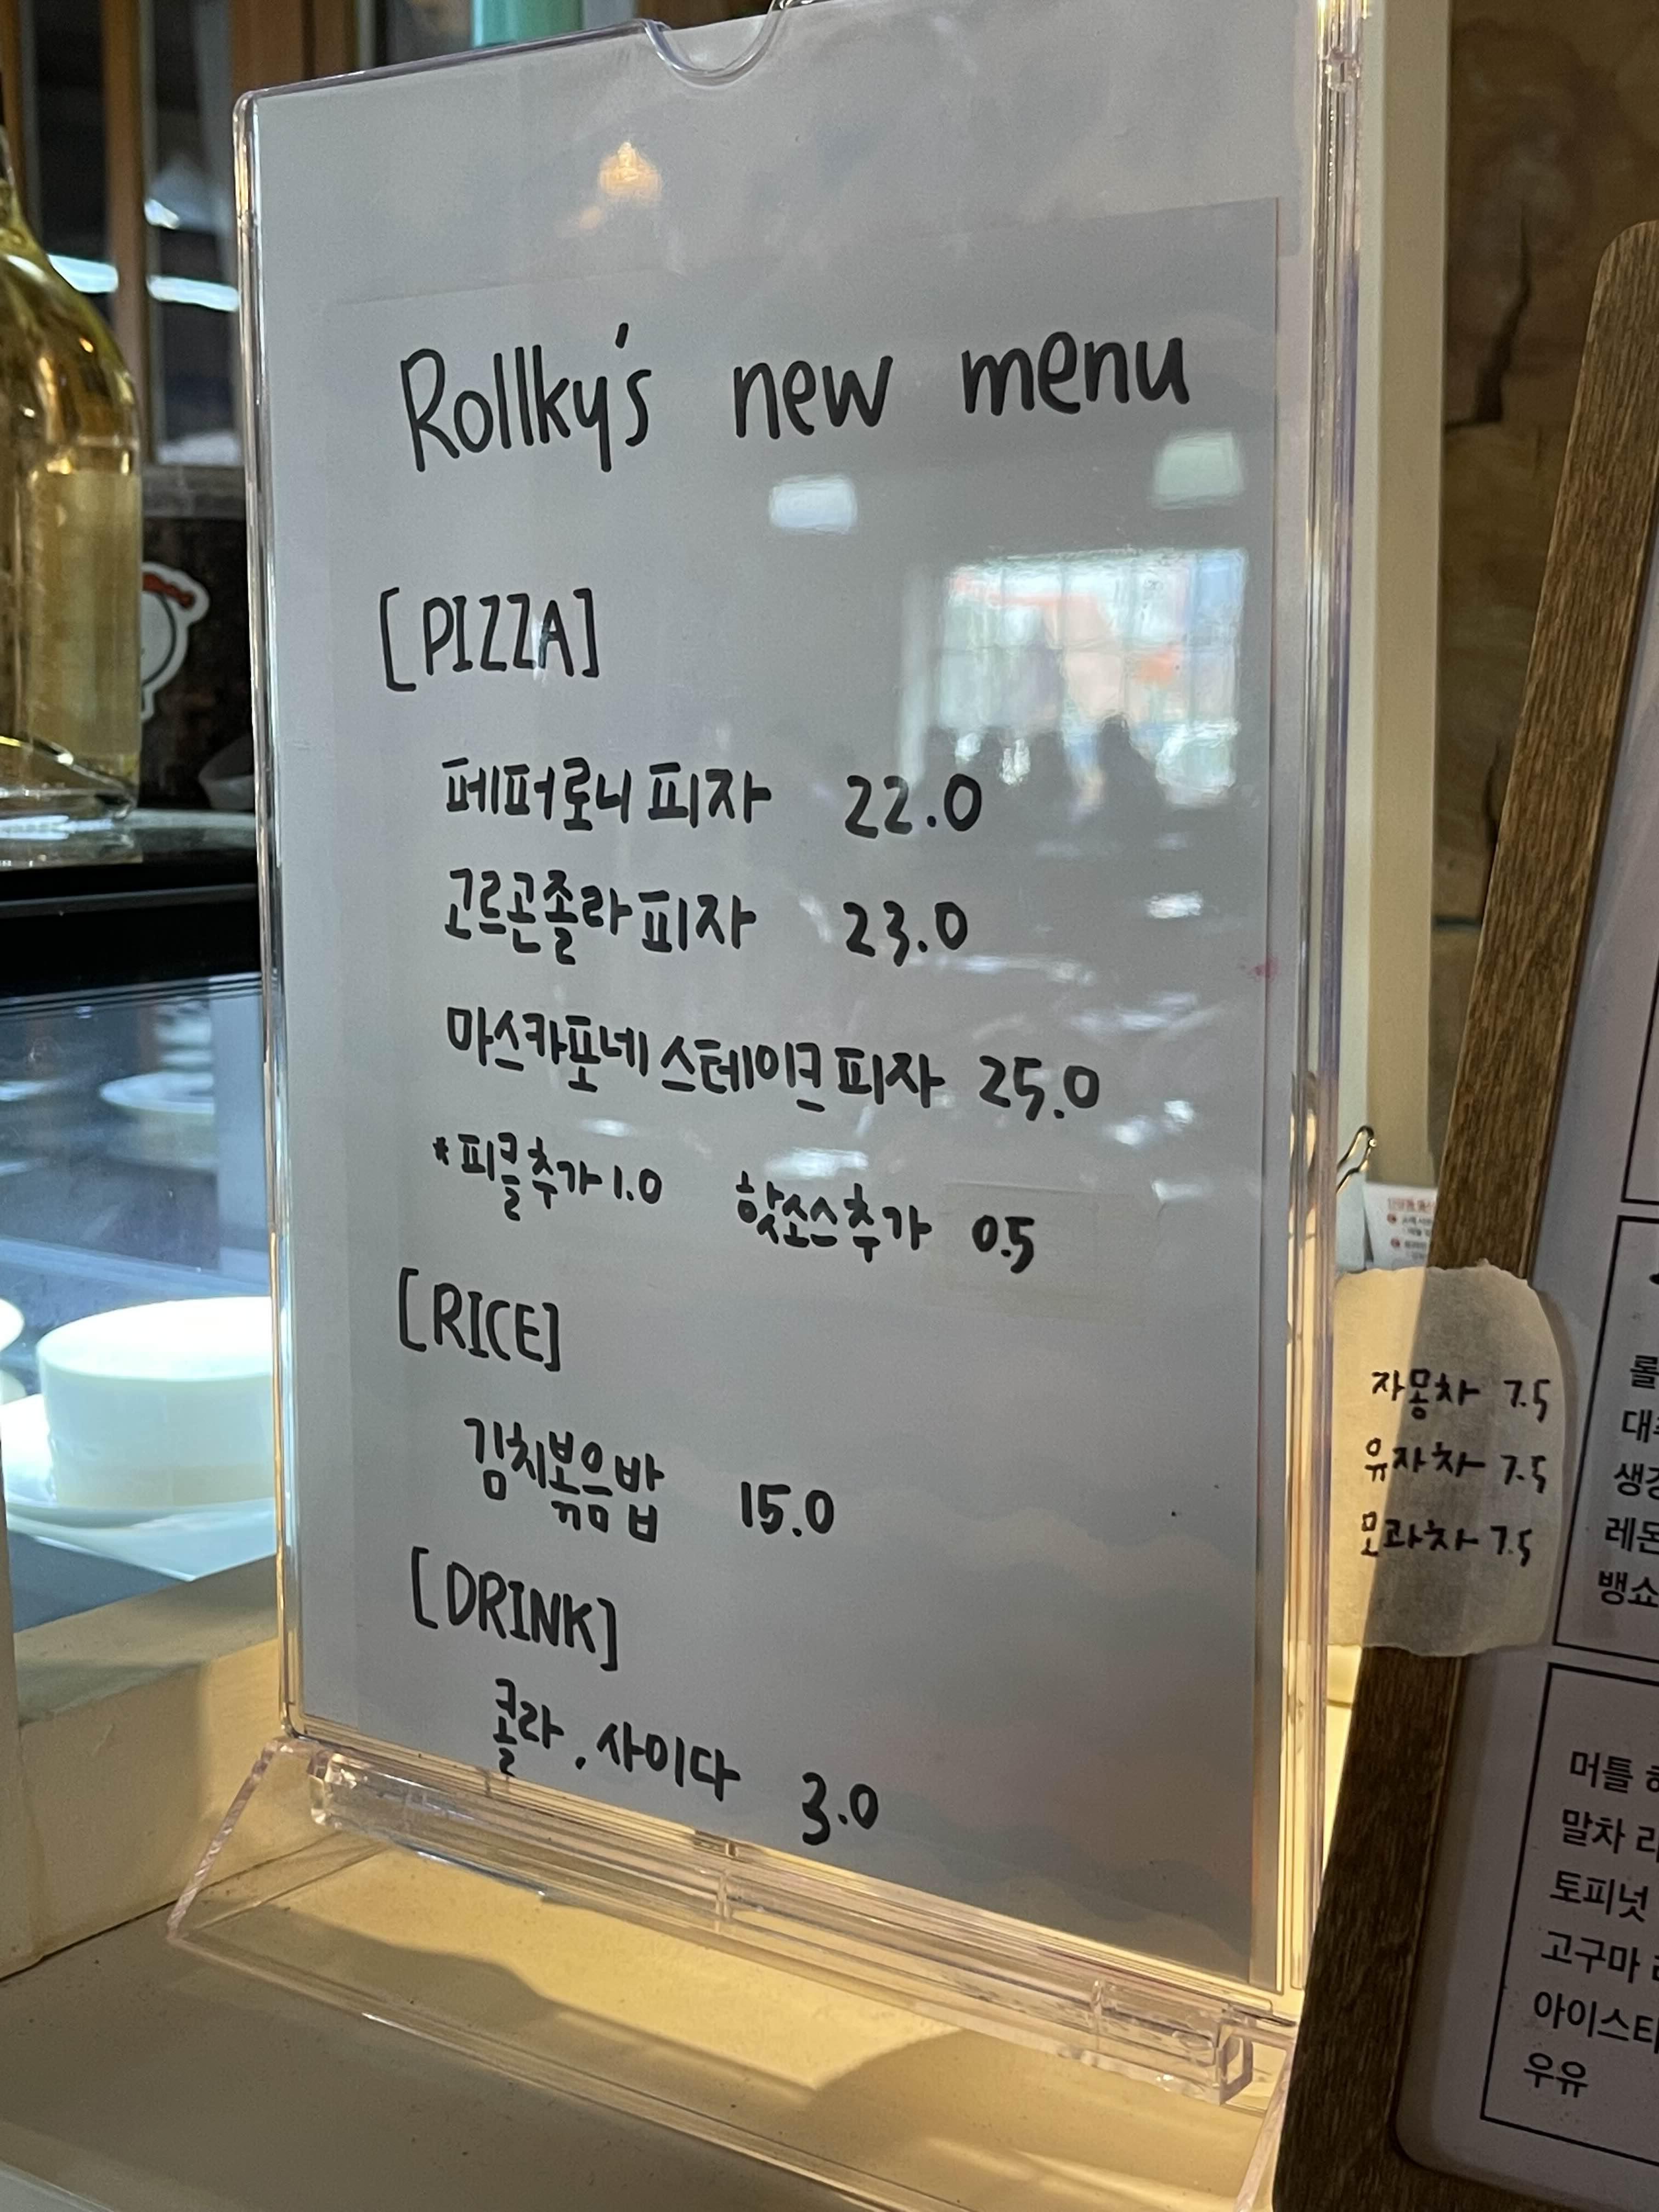 Rollky's new menu
[PIZZA]
페퍼로니 피자 22.0
고르곤졸라 피자 23.0
마스카포네 스테이크 피자 25.0
*피클추가 1.0 핫소스추가 0.5
[RICE]
김치볶음밥 15.0
[DRINK]
콜라, 사이다 3.0
자몽차 7.5
유자차 7.5
모과차 7.5
롤
대추
생강
레몬
뱅쇼
머틀
말차
토피넛
고구마
아이스티
우유